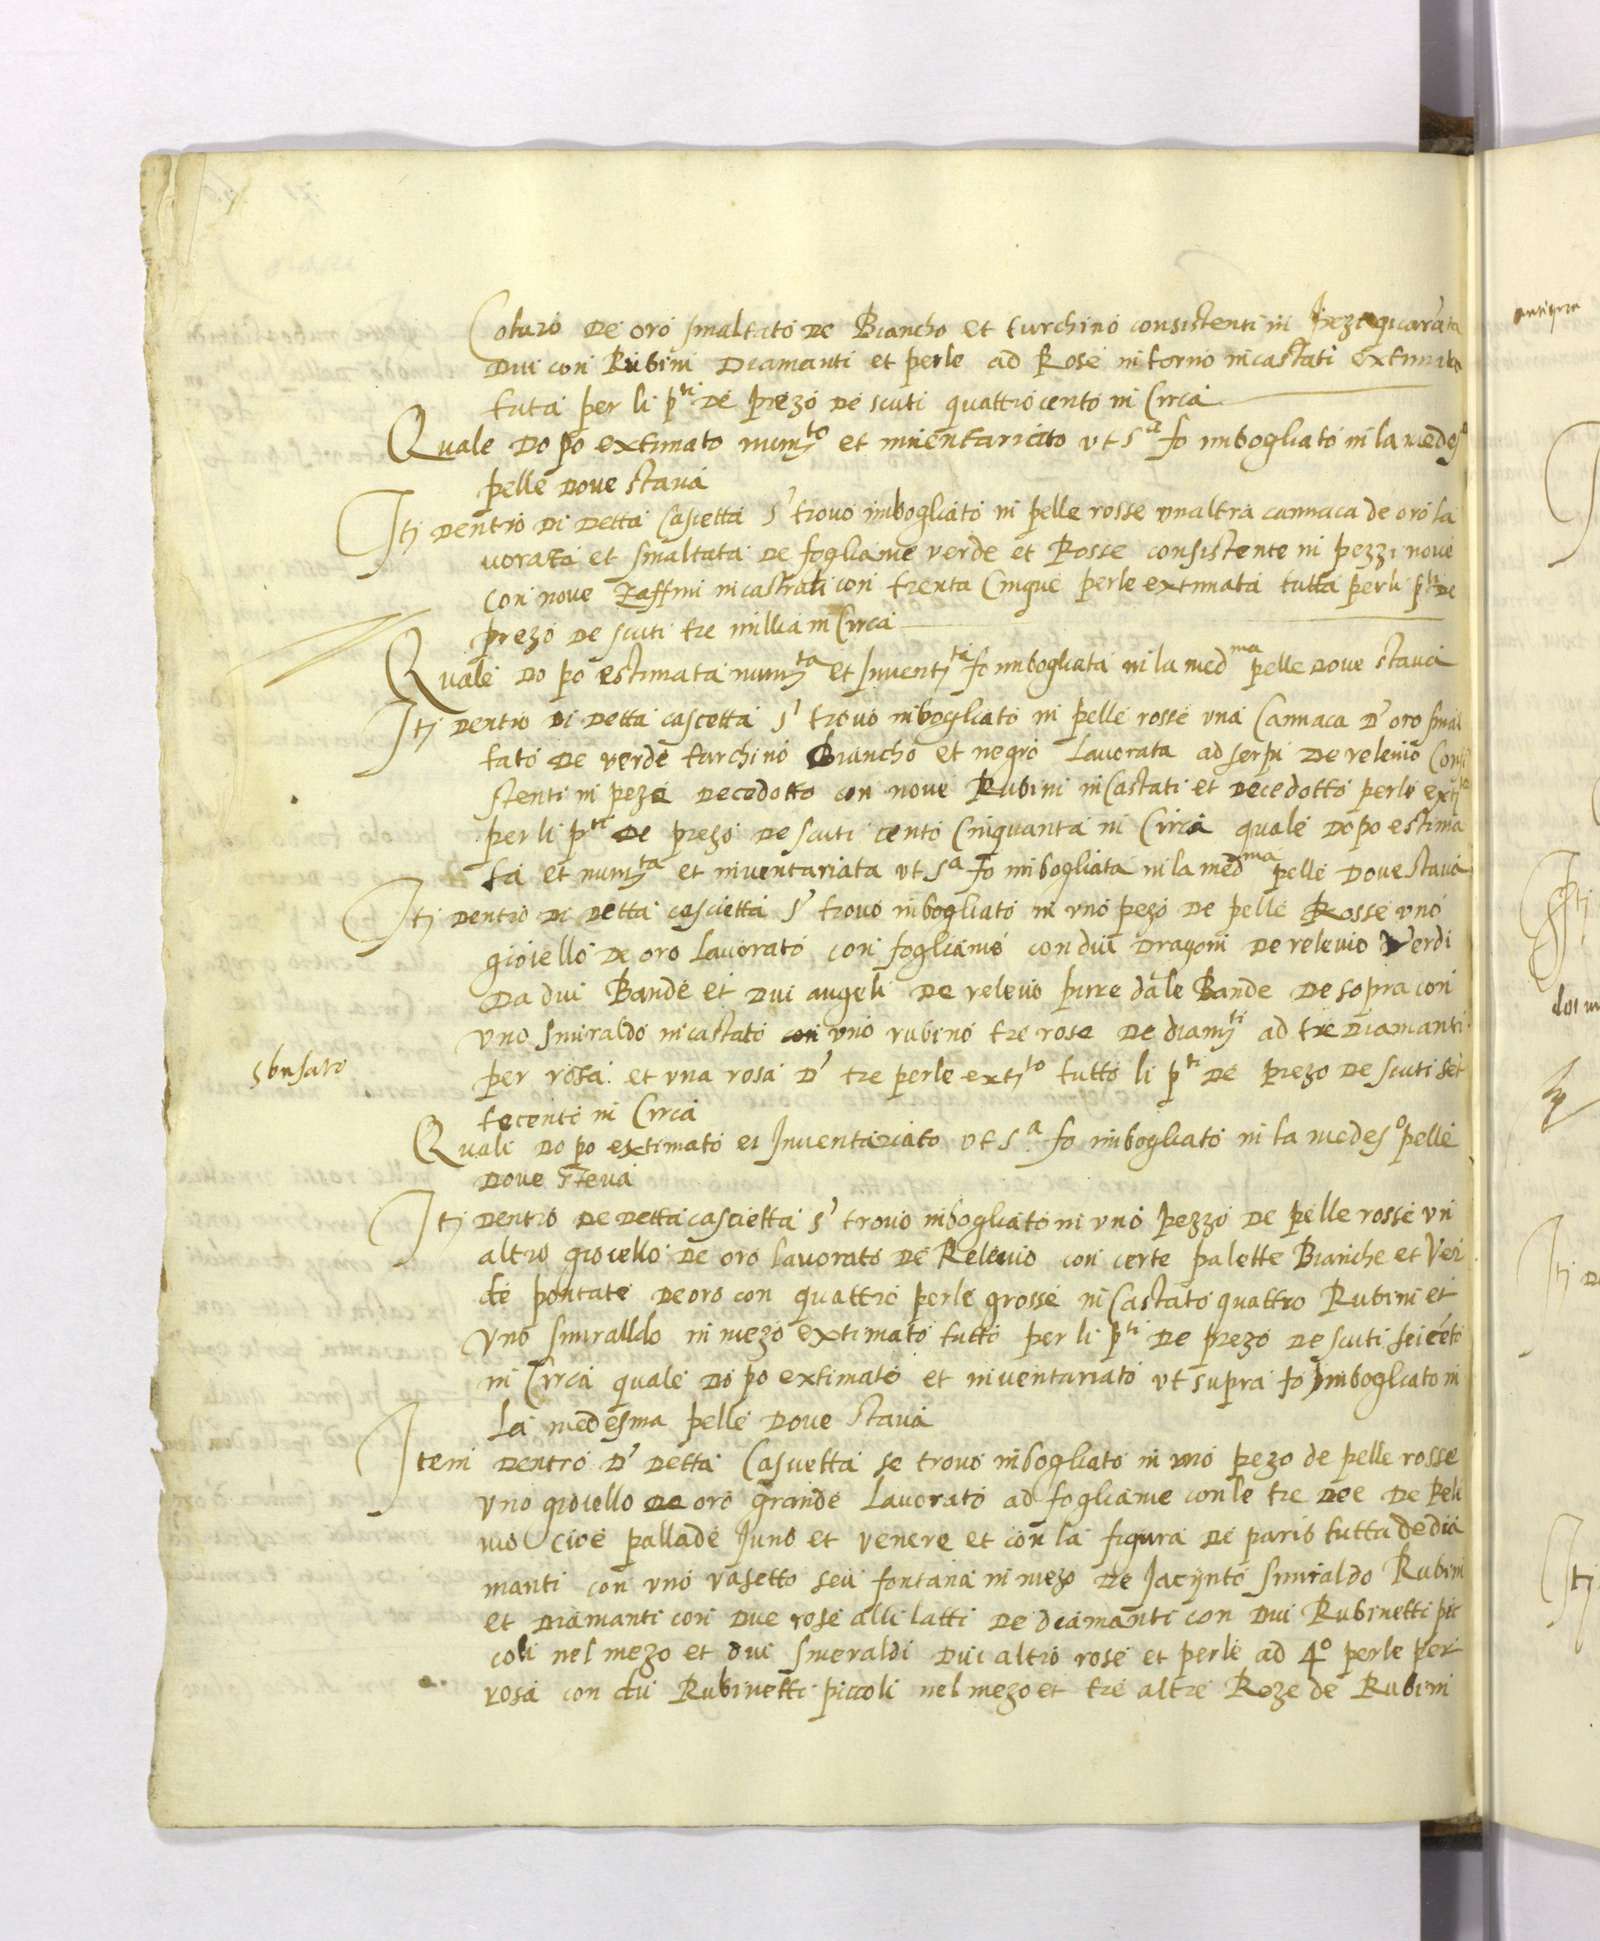 Coluro De oro smaltato De Biancho et turchino consistenti in pezi quarata
Dui con Rubini Diamanti et perle ad Rose intorno incastati extimata
tuta per li p^ti De prezo de scuti quattrocento in Circa
Quale Do po extimato num^to et inventariato ut s^a fo imbogliato in la medes^o
pelle Dove stava
Itj Dentro Di Detta Cascetta s' trovo imbogliato in pelle rosse unaltra cannaca de oro la
vorata et smaltata De fogliame verde et Rosse consistente in pezzi nove
Con nove Zaffini incastrati con trenta Cinque perle extimata tutta per li p^ti De
prezo De scuti tre millia in Circa
Quale Do po estimata num^ta et Invent^ta fo imbogliata in la med^ma pelle Dove stava
Itj Dentro Di Detta cascetta s' trovo inbogliato in pelle rosse una Cannaca D' oro smal
tato De verde turchino Biancho et negro Lavorata ad serpi De relevio Consi
stenti in peze Decedotto con nove Rubini in Castati et Decedotto perle ext^ta
per li p^ti De prezo De scuti cento Cinquanta in Circa quale Dopo estima
ta et num^ta et inventariata ut s^a fo imbogliata in la med^ma pelle Dove stava
Itj Dentro Di Detta cascietta s' trovo inbogliato in uno pezo De pelle Rosse uno
gioiello De oro Lavorato con fogliame con dui Dragoni De relevio Verdi
Da dui Bande et Dui angeli De relevio purre dale Bande De sopra con
uno Smiraldo incastato con uno rubino tre rose De diam^ti ad tre Diamanti
sbusato
per rosa et una rosa D' tre perle ext^to tutto li p^ti De prezo De scuti set
tecento in Circa
Quali Do po extimato et Inventariato ut s^a fo imbogliato in la medes^o pelle
Dove steva
Itj Dentro De Detta cascietta s' trovo inbogliato in uno pezzo De pelle rosse un
altro giovello De oro Lavorato De Relevio con certe palette Bianche et Ver
de pontate De oro con quattro perle grosse in Castato quattro Rubini et
Uno smiralldo in mezo extimato tutto per li p^ti De prezo De scuti seiceto
in Circa quale Do po extimato et inventariato ut supra fo imbogliato in
La medesma pelle Dove stava
Item Dentro D' Detta Casuetta se trovo inbogliato in uno pezo de pelle rosse
Uno giovello De oro grande Lavorato ad fogliame con le tre Dee De Rele
vio Cioe pallade Juno et venere et con la figura De paris tutta de dia
manti con uno vasetto seu fontana in mezo De Jacynto Smiraldo Rubini
et Diamanti con Due rose alli latti De diamanti con Dui Rubinetti pic
coli nel mezo et dui smeraldi Dui altro rose et perle ad 4^o perle per
rosa con dui Rubinetti piccoli nel mezo et tre altre Roze de Rubini